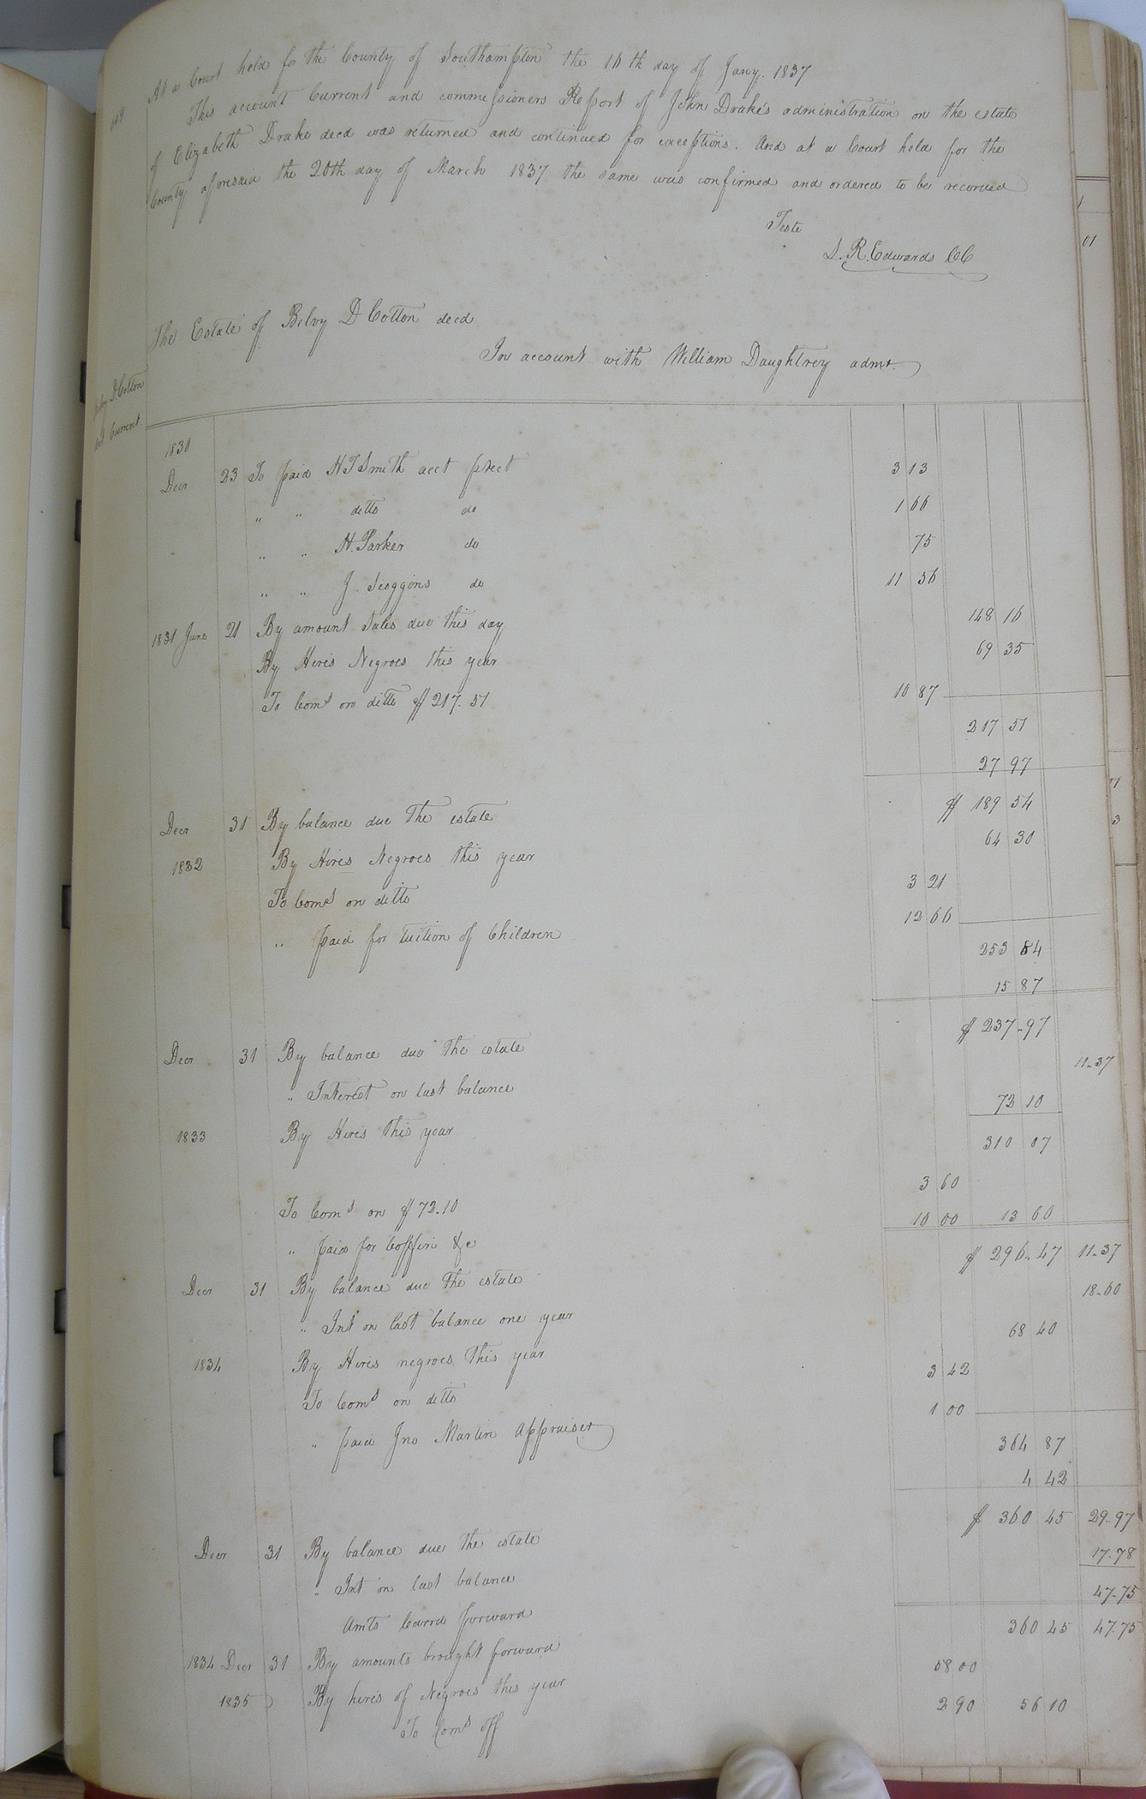 At a Court held for the County of Southampton the 16th day of Jany. 1837
This account Current and commissioners Report of John Drake's administration on the estate
of Elizabeth Drake decd was returned and continued for exceptions. And at a Court held for the
County aforesaid the 20th day of March 1837 the same was confirmed and ordered to be recorded
Teste
L. R. Edwards CC
The Estate of Bilvy D Cotton decd
In account with William Daughtrey admr.
D Cotton
Current
1830
Decr 23 To paid H T Smith acct prect 3 13
" " ditto do 1 66
" " H. Parker do 75
" " J. Scoggins do 11 56
1831 June 21 By amount Sales due this day 148 16
By Hires Negroes this year 69 35
To Coms on ditto $217.51 10 87
217 51
27 97
Decr 31 By balance due the estate $ 189 54
1832 By Hires Negroes this year 64 30
To Coms on ditto 3 21
" paid for tuition of Children 12 66
253 84
15 87
Decr 31 By balance due the estate $ 237-97
" Interest on last balance 11-37
1833 By Hires this year 72 10
310 07
To Coms on $72.10 3 60
" paid for Coffin &c 10 00 13 60
Decr 31 By balance due the estate $ 296-47 11-37
" Int on last balance one year 18-60
1834 By Hires negroes this year 68 40
To Coms on ditto 3 42
" paid Jno Martin Appraiser 1 00
364 87
4 42
Decr 31 By balance due the estate $ 360 45 29-97
" Int on last balance 17-78
47-75
Amts Carrd forward 360 45 47.75
1834 Decr 31 By amounts brought forward
1835 By hires of Negroes this year 58 00
To Coms off 2 90 56 10